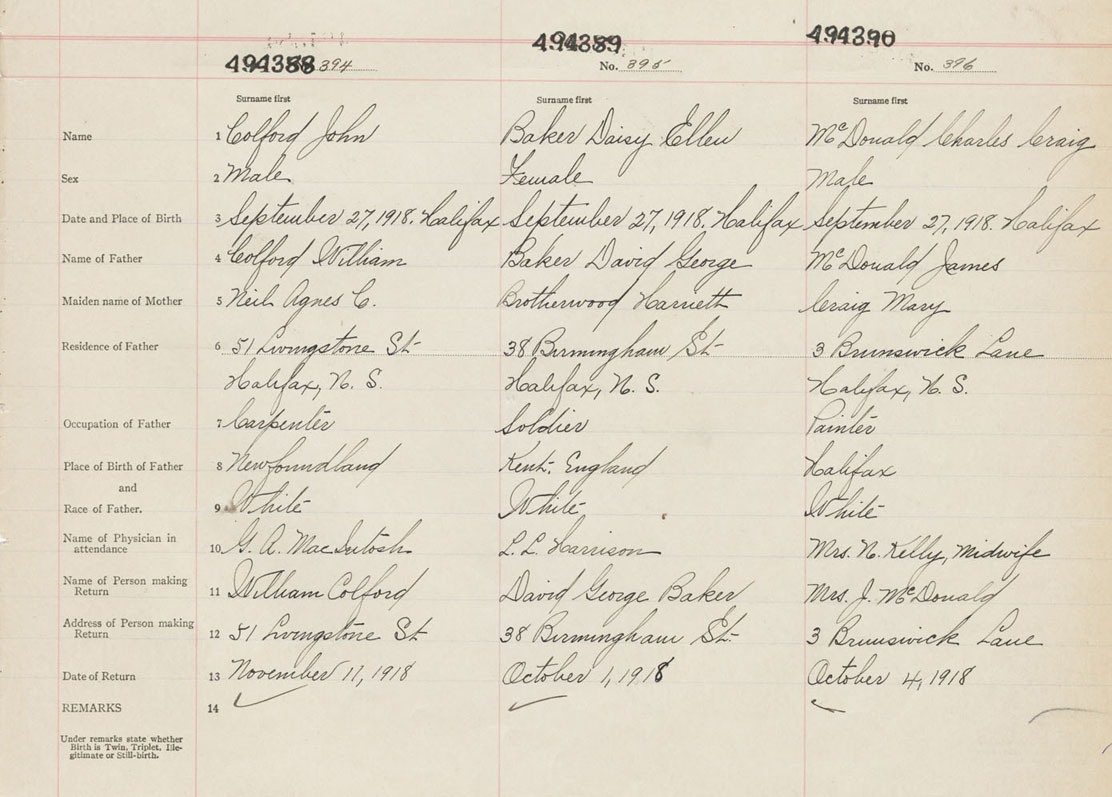 494388 394
494389
No. 395
494390
No. 396
Surname first Surname first Surname first
Name 1 Colford John Baker Daisy Ellen McDonald Charles Craig
Sex 2 Male Female Male
Date and Place of Birth 3 September 27, 1918. Halifax September 27, 1918. Halifax September 27, 1918. Halifax
Name of Father 4 Colford William Baker David George McDonald James
Maiden name of Mother 5 Neil Agnes C. Brotherwood Harriett Craig Mary
Residence of Father 6 51 Livingstone St 38 Birmingham St. 3 Brunswick Lane
Halifax, N. S. Halifax, N. S. Halifax, N. S.
Occupation of Father 7 Carpenter Soldier Painter
Place of Birth of Father 8 Newfoundland Kent. England Halifax
and
Race of Father. 9 White White White
Name of Physician in
attendance 10 G. A. MacIntosh L. L. Harrison Mrs. N. Kelly, Midwife
Name of Person making
Return 11 William Colford David George Baker Mrs. J. McDonald
Address of Person making
Return 12 51 Livingstone St 38 Birmingham St. 3 Brunswick Lane
Date of Return 13 November 11, 1918 October 1, 1918 October 4, 1918
REMARKS 14
Under remarks state whether
Birth is Twin, Triplet, Ille-
gitimate or Still-birth.